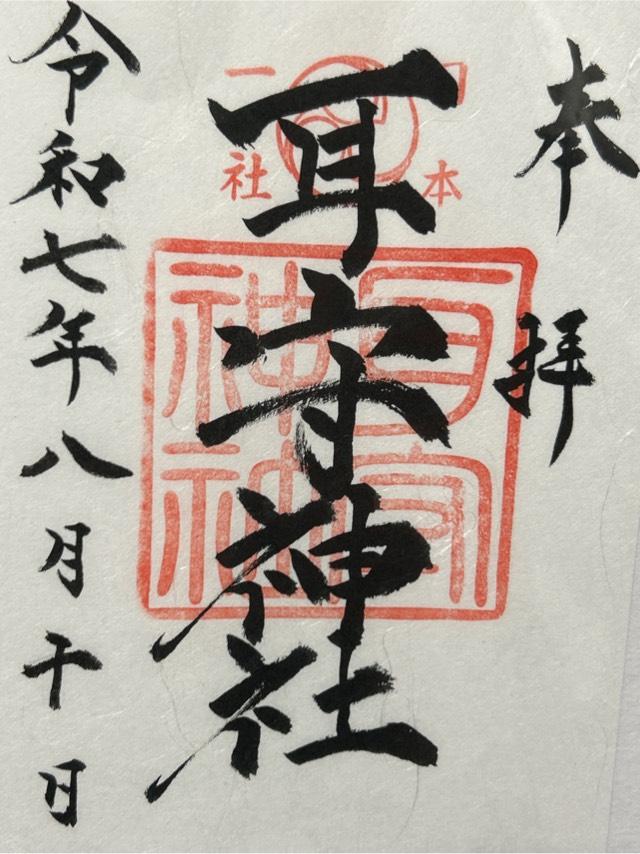 奉拝
日本
一社
耳守神社
耳守
神社
令和七年八月干日